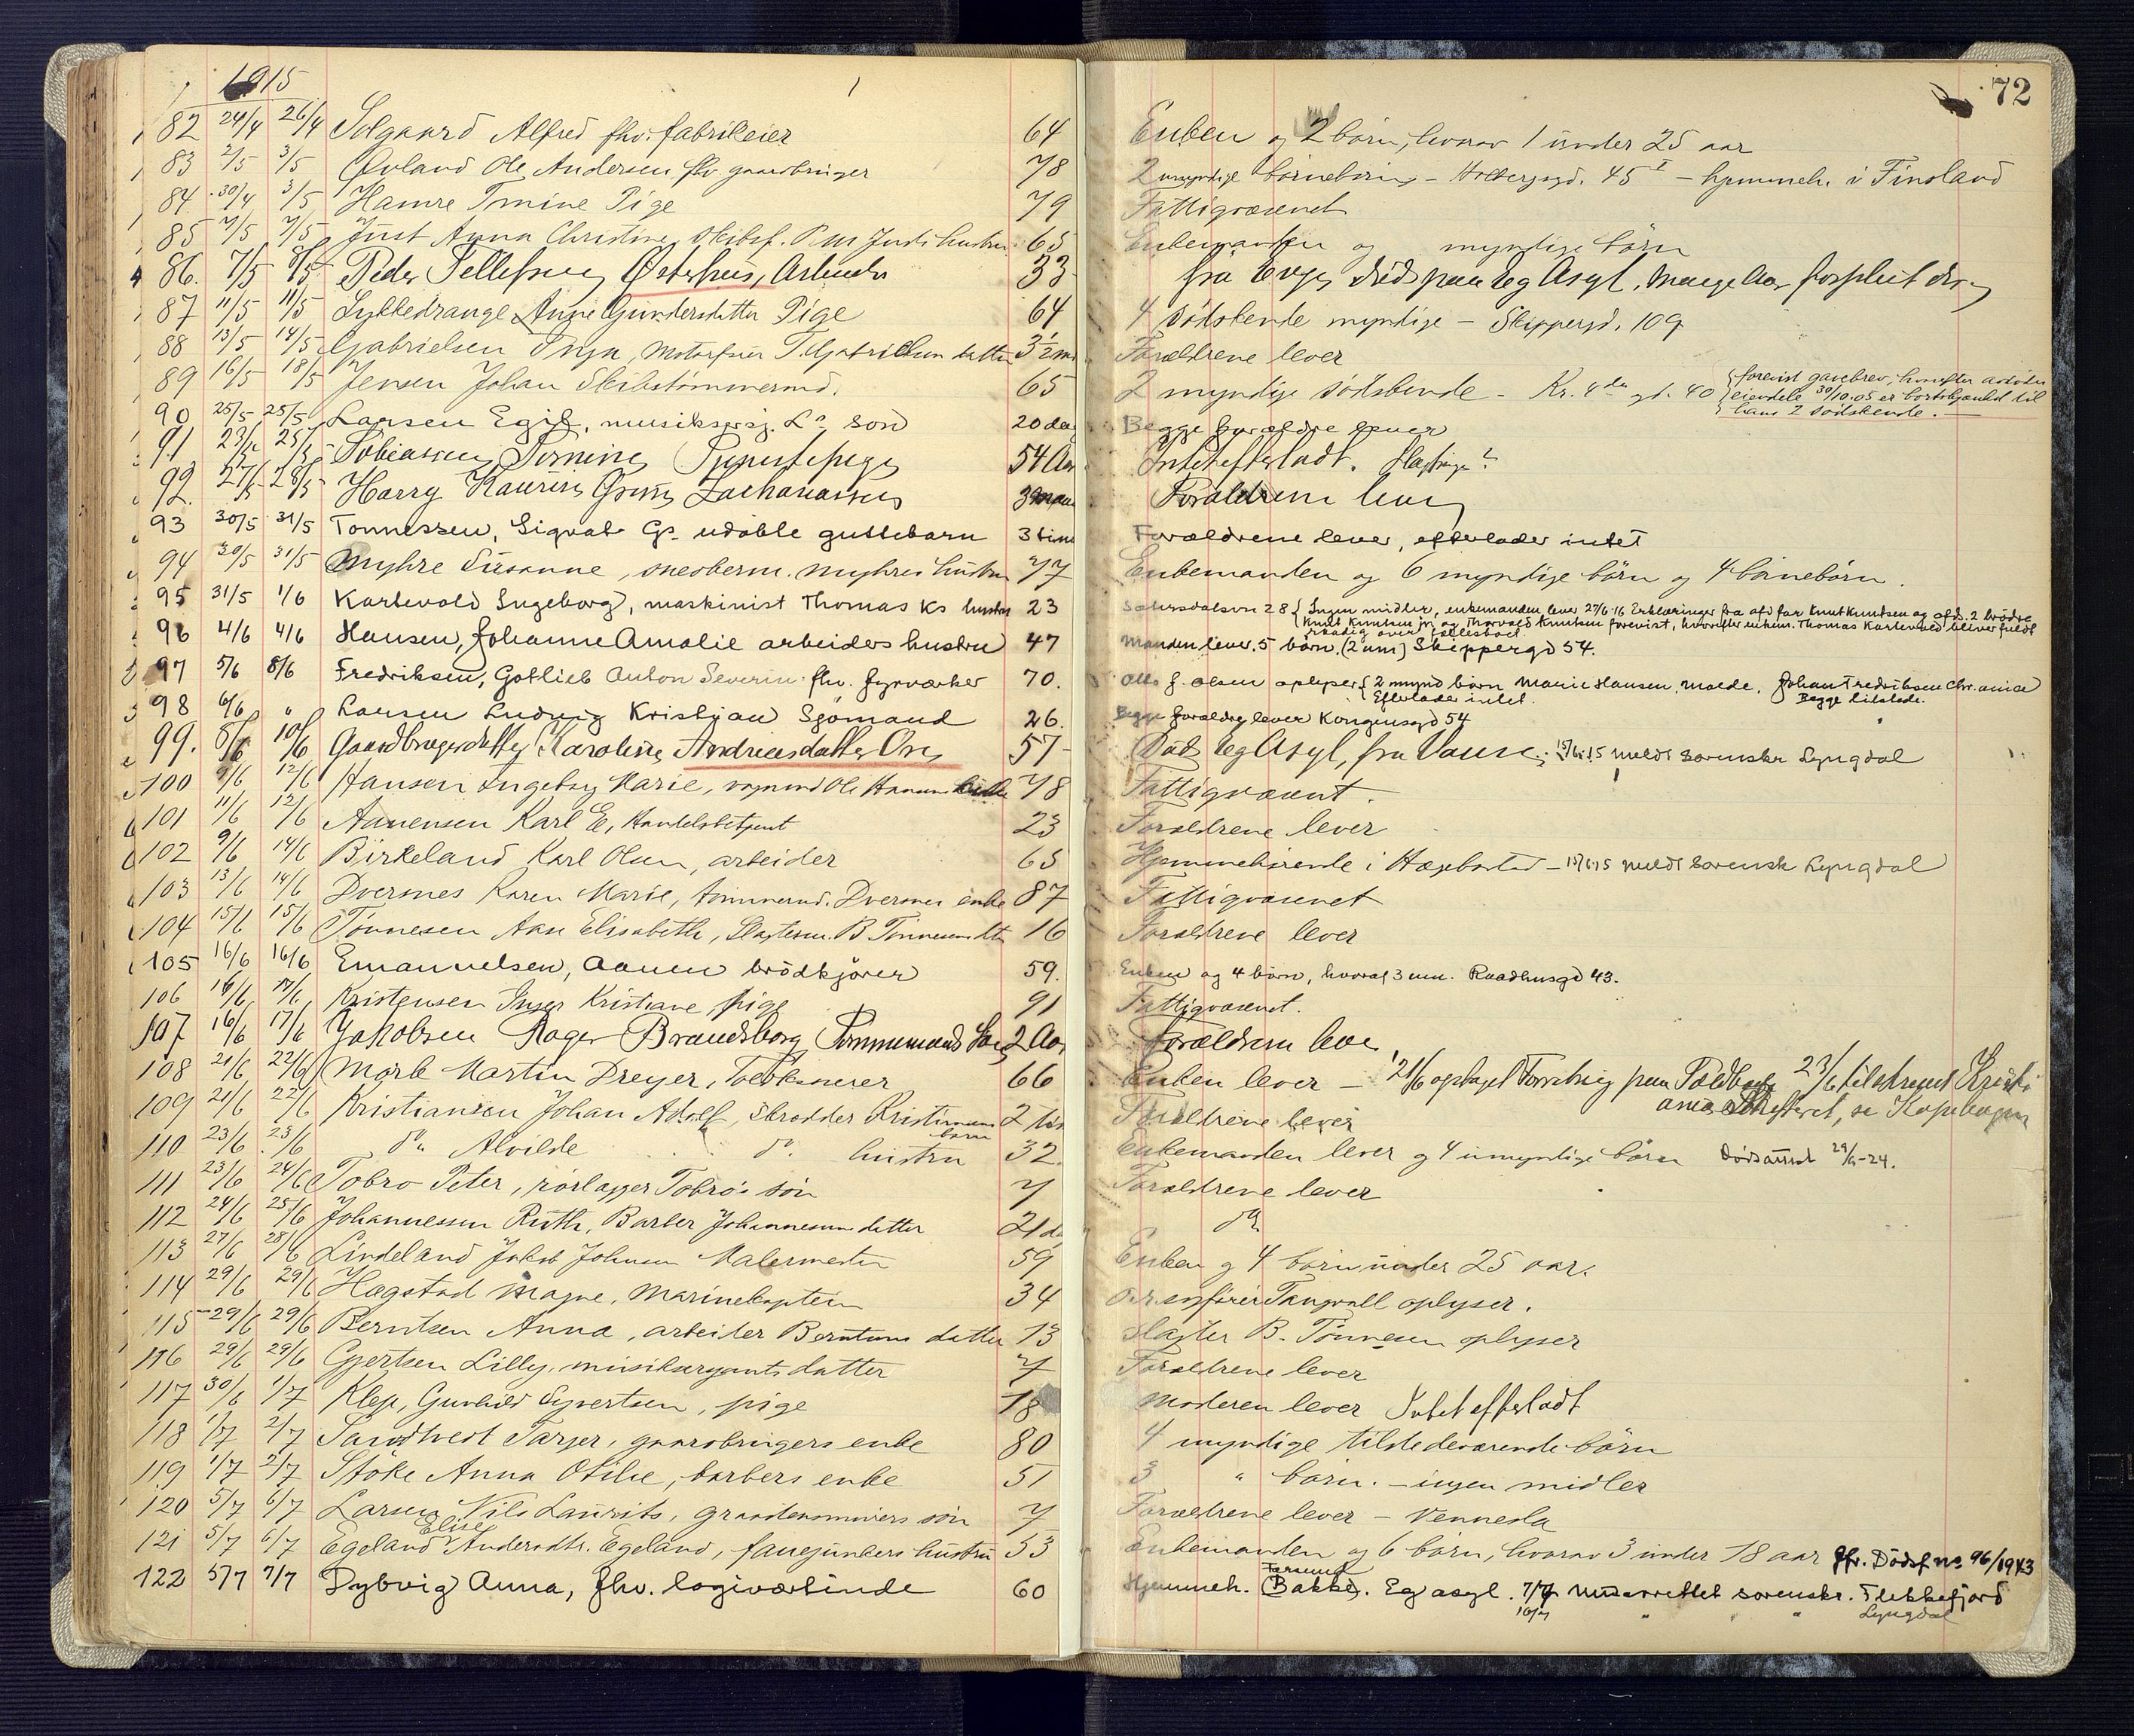 1915
72
82 24/4 26/4 Solgaard Alfred fhv. fabrikeier 64 Enken og 2 børn, hvorav 1 under 25 aar
83 2/5 3/5 Øvland Ole Andersen fhv gaardbruger 78 2 umyndige børnebørn - Holbergsgd. 45 I - hjemmeh. i Finsland
84 30/4 3/5 Hamre Trine Pige 79 Fattigvæsenet
85 7/5 7/5 Just Anna Christine, skibsf. Just hustru 65 Enkemanden og myndige børn
86. 7/5 8/5 Peder Tellefsen Østerhus, Arbeider 33 fra Evje, død paa Eg Asyl. Mange Aar forpleiet der
87 11/5 11/5 Lykkedrange Anne Gundersdatter Pige 64 4 sødskende myndige - Skippergd. 109
88 13/5 14/5 Gabrielsen, Motorfører T. Gabrielsens datter 3½ Forældrene lever
89 16/5 18/5 Jensen Johan Skibstømmermd. 65 2 myndige sødskende - Kr. 4des gd. 40 { forevist gavebrev, hvorefter avdødes
eiendele 30/10.05 er bortskjænket til
hans 2 sødskende.
90 25/5 25/5 Larsen Egil, musikserg. Ls søn 20 da Begge forældre lever
91 23/5 25/5 Tobiassen Tomine Tjenestepige 54 Aar Intet efterladt.
92. 27/5 28/5 Harry Kaurin Zachariassen 3 Forældrene lever
93 30/5 31/5 Tønnessen, Sigvat Gs. udøbte guttebarn 3 tim Forældrene lever, efterlader intet
94 30/5 31/5 Myhre Susanne, snedkerm. Myhres hustru 77 Enkemanden og 6 myndige børn og 4 børnebørn.
95 31/5 1/6 Kartevold Ingeborg, maskinist Thomas Ks hustru 23 28 { Ingen midler, enkemanden lever 27/6-16 Erklæringer fra afd far Knut Knutsen og afd. 2 brødre
Knut Knutsen jr. og Thorvald Knutsen forevist, hvorefter enkem. Thomas Kartevold bliver fuldt
raadig over fællesboet
96 4/6 4/6 Hansen, Johanne Amalie arbeiders hustru 47 Manden lever. 5 børn. (2 um) Skippergd 54.
97 5/6 8/6 Fredriksen, Gotlieb Anton Severin fhv. fyrvækter 70. Olsen oplyser { 2 mynd børn Marie Hansen, Molde, Johan Fredriksen Chr.ania
Efterlader intet. Begge tilstede.
98 6/6 " Larsen Ludvig Kristjan Sjømand 26. Begge forældre lever Kongensgd 54
99. 8/6 10/6 Gaardbrugerdatter Karoline Andreasdatter Ore 57 Død Eg Asyl, fra Vanse. 15/6.15 meldt sorenskr Lyngdal
100 9/6 12/6 Hansen Ingeborg Marie, vognmd Ole Hansens 78 Fattigvæsent.
101 11/6 12/6 Aanensen Karl E, Handelsbetjent 23 Forældrene lever
102 9/6 14/6 Birkeland Karl Olsen, arbeider 65 Hjemmehørende i Hægebostad - 15/6 15 meldt sorensk Lyngdal
103 13/6 14/6 Dversnes Karen Marie, tømmermd. Dversnes enke 87 Fattigvæsenet
104 15/6 15/6 Tønnesen Aase Elisabeth, Slagterm. B Tønnesens dtr 16 Forældrene lever
105 16/6 16/6 Emanuelsen, Aanen brødkjører 59. Enken og 4 børn, hvoraf 3 um. Raadhusgd 43.
106 16/6 17/6 Kristensen Inger Kristiane pige 91 Fattigvæsenet.
107 16/6 17/6 Jakobsen Roger Brandsborg Tømmermands Søn 2 Aar Forældrene lever
108 21/6 22/6 Mørk Martin Dreyer, Toldkasserer 66 Enken lever - 21/6 optaget Forretning paa Toldboden 23/6 tilskrevet Kristi
ania Skifteret, se Kopibogen
109 21/6 22/6 Kristiansen Johan Adolf, skrædder Kristiansens barn 2 Forældrene lever
110 23/6 23/6 do. Alvilde do. hustru 32 Enkemanden lever og 4 umyndige børn Dødsattest 29/4-24.
111 23/6 24/6 Tobro Peter, rørlægger Tobro's søn 7 Forældrene lever
112 24/6 25/6 Johannessen Ruth, Barber Johannesens datter 21 d do.
113 27/6 28/6 Lindeland Jakob Johnsen Malermester 59 Enken og 4 børn under 25 aar.
114 29/6 29/6 Hægstad Magne, Marinekaptein 34 O.r.sagfører Tangvall oplyser.
115 29/6 29/6 Berntsen Anna, arbeider Berntsens datter 13 Slagter B. Tønnesen oplyser
116 29/6 29/6 Gjertsen Lilly, musiksergeants datter 7 Forældrene lever
117 30/6 1/7 Klep, Gunhild Syvertsen, pige 18 Moderen lever Intet efterladt
118 1/7 2/7 Sandtvedt Tarjer, gaardbrugers enke 80 4 myndige tilstedeværende børn
119 1/7 2/7 Støke Anna Otilie, barbers enke 51 3 " børn. - ingen midler
120 5/7 6/7 Larsen Nils Laurits, søn 7 Forældrene lever - Vennesla
121 5/7 6/7 Egeland Elise Andersdtr. Egeland, fanejunkers hustru 53 Enkemanden og 6 børn, hvorav 3 under 18 aar Jfr. Dødsf no 96/1943
122 5/7 7/7 Dybvig Anna, fhv. logivertinde 60 Hjemmeh. Farsund (Bakke). Eg asyl. 7/7 underrettet sorenskr. Flekkefjord
10/7 " " " Lyngdal